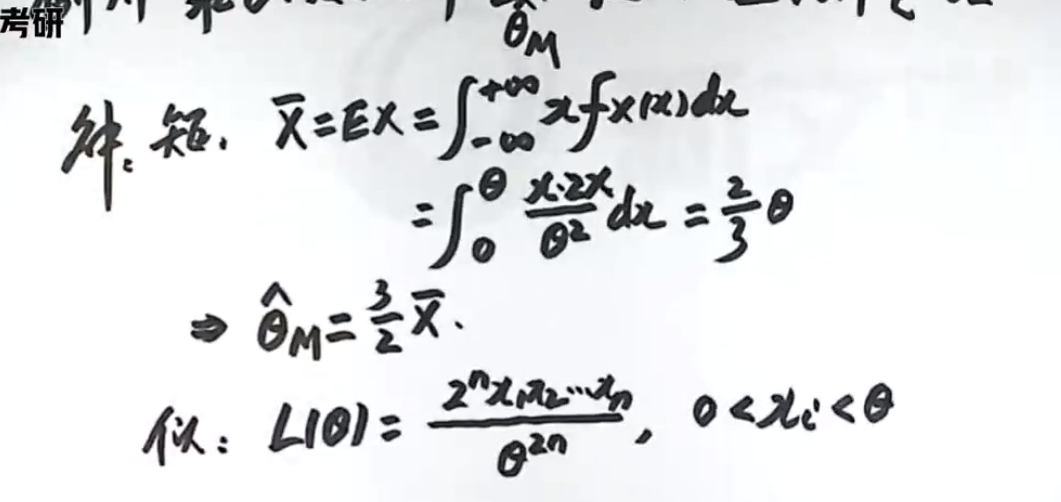 考研
θ̂_M
解: 矩: X̄ = EX = ∫_{-∞}^{+∞} x f_X(x) dx
= ∫_0^θ (x·2x)/θ² dx = 2/3 θ
⇒ θ̂_M = 3/2 X̄.
似: L(θ) = (2ⁿx₁x₂⋯xₙ)/θ²ⁿ, 0 < xᵢ < θ